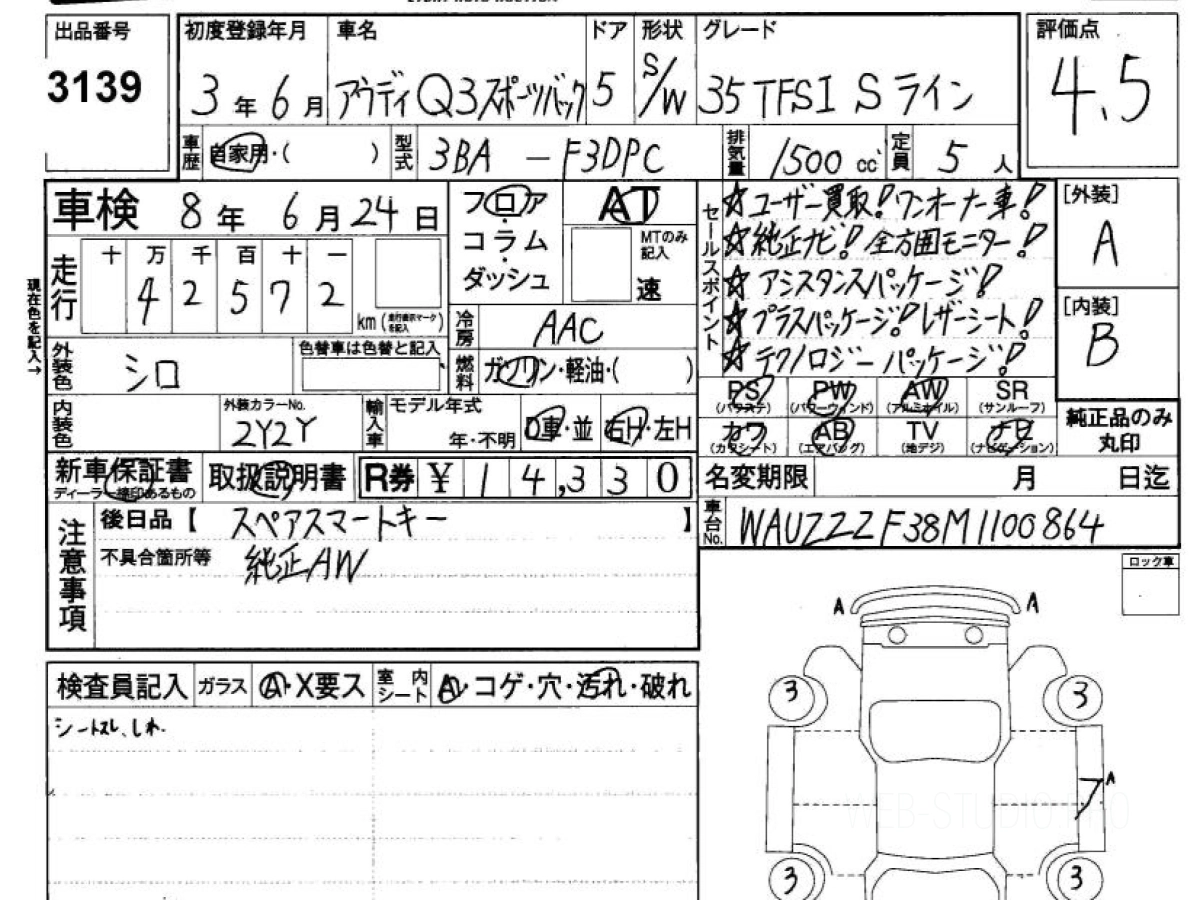 出品番号 初度登録年月 車名 ドア 形状 グレード 評価点
3139 3年6月 アウディQ3スポーツバック 5 S/W 35TFSI Sライン 4.5
車歴 自家用・( ) 型式 3BA - F3DPC 排気量 1500cc 定員 5人
車検 8年 6月 24日 フロア・コラム・ダッシュ AT MTのみ記入 速
セールスポイント
☆ユーザー買取!ワンオーナー車!
☆純正ナビ!全方囲モニター!
☆アシスタンスパッケージ!
☆プラスパッケージ!レザーシート!
☆テクノロジーパッケージ!
[外装] A
[内装] B
現在色を記入→
走行 十 万 千 百 十 一
4 2 5 7 2 km (走行表示マークを記入)
冷房 AAC
外装色 シロ 色替車は色替と記入
燃料 ガソリン・軽油・( )
内装色 外装カラーNo. 2Y2Y 輸入車 モデル年式 年・不明 D車・並 右H・左H
PS (パワステ) PW (パワーウィンド) AW (アルミホイル) SR (サンルーフ)
カワ (カワシート) AB (エアバッグ) TV (地デジ) ナビ (ナビゲーション)
純正品のみ
丸印
新車保証書 ディーラー捺印あるもの 取扱説明書 R券 ¥14,330
名変期限 月 日迄
注意事項
後日品【 スペアスマートキー 】
不具合箇所等 純正AW
車台No. WAUZZZF38M1100864
ロック車
検査員記入 ガラス A・X要ス 室内シート A・コゲ・穴・汚れ・破れ
シートスレ、しわ.
A A
3 3
A
3 3
WEB-STUDIO.PRO